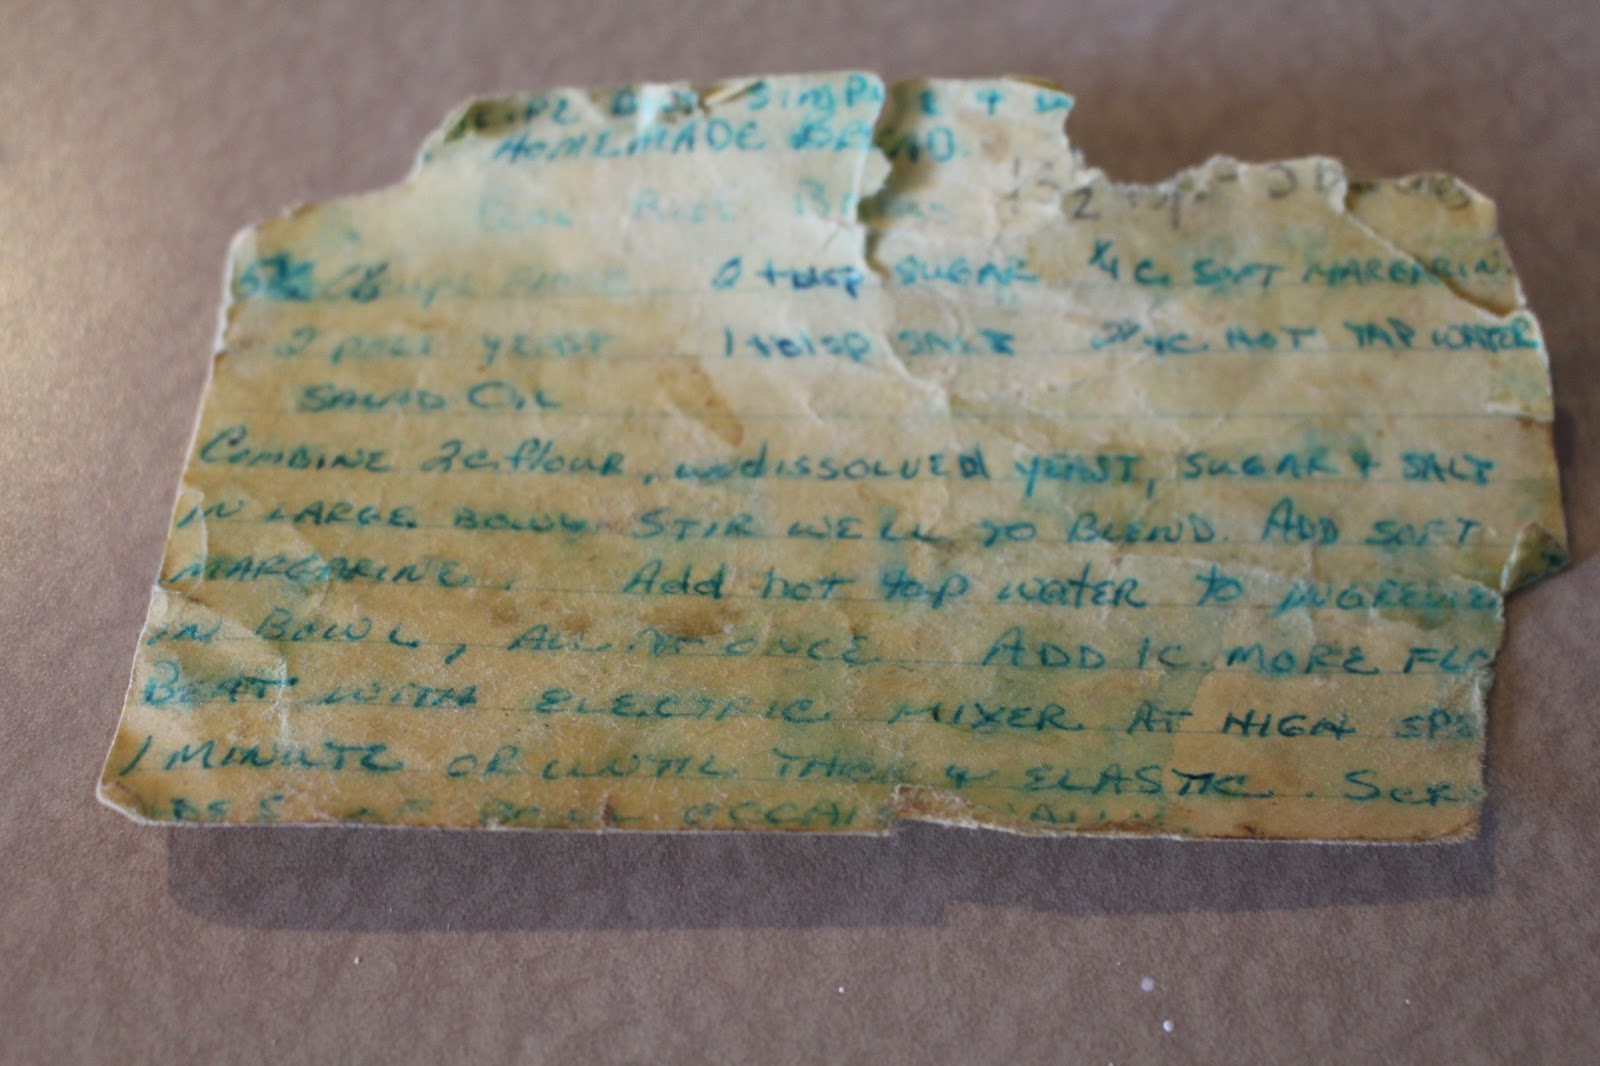 HOMEMADE BREAD
Rise
2 tblsp SUGAR 1/4 c. SOFT MARGARIN
2 YEAST 1 tblsp SALT 2 1/4 c. HOT TAP WATER
SALAD OIL
COMBINE 2 c. flour, undissolved YEAST, SUGAR + SALT
IN LARGE BOWL. STIR WELL TO BLEND. ADD SOFT
MARGARINE. Add hot tap water to
IN BOWL, ALL AT ONCE. ADD 1 c. MORE FLO
BEAT WITH ELECTRIC MIXER AT HIGH SPE
1 MINUTE OR UNTIL THICK & ELASTIC. SCR
BOWL